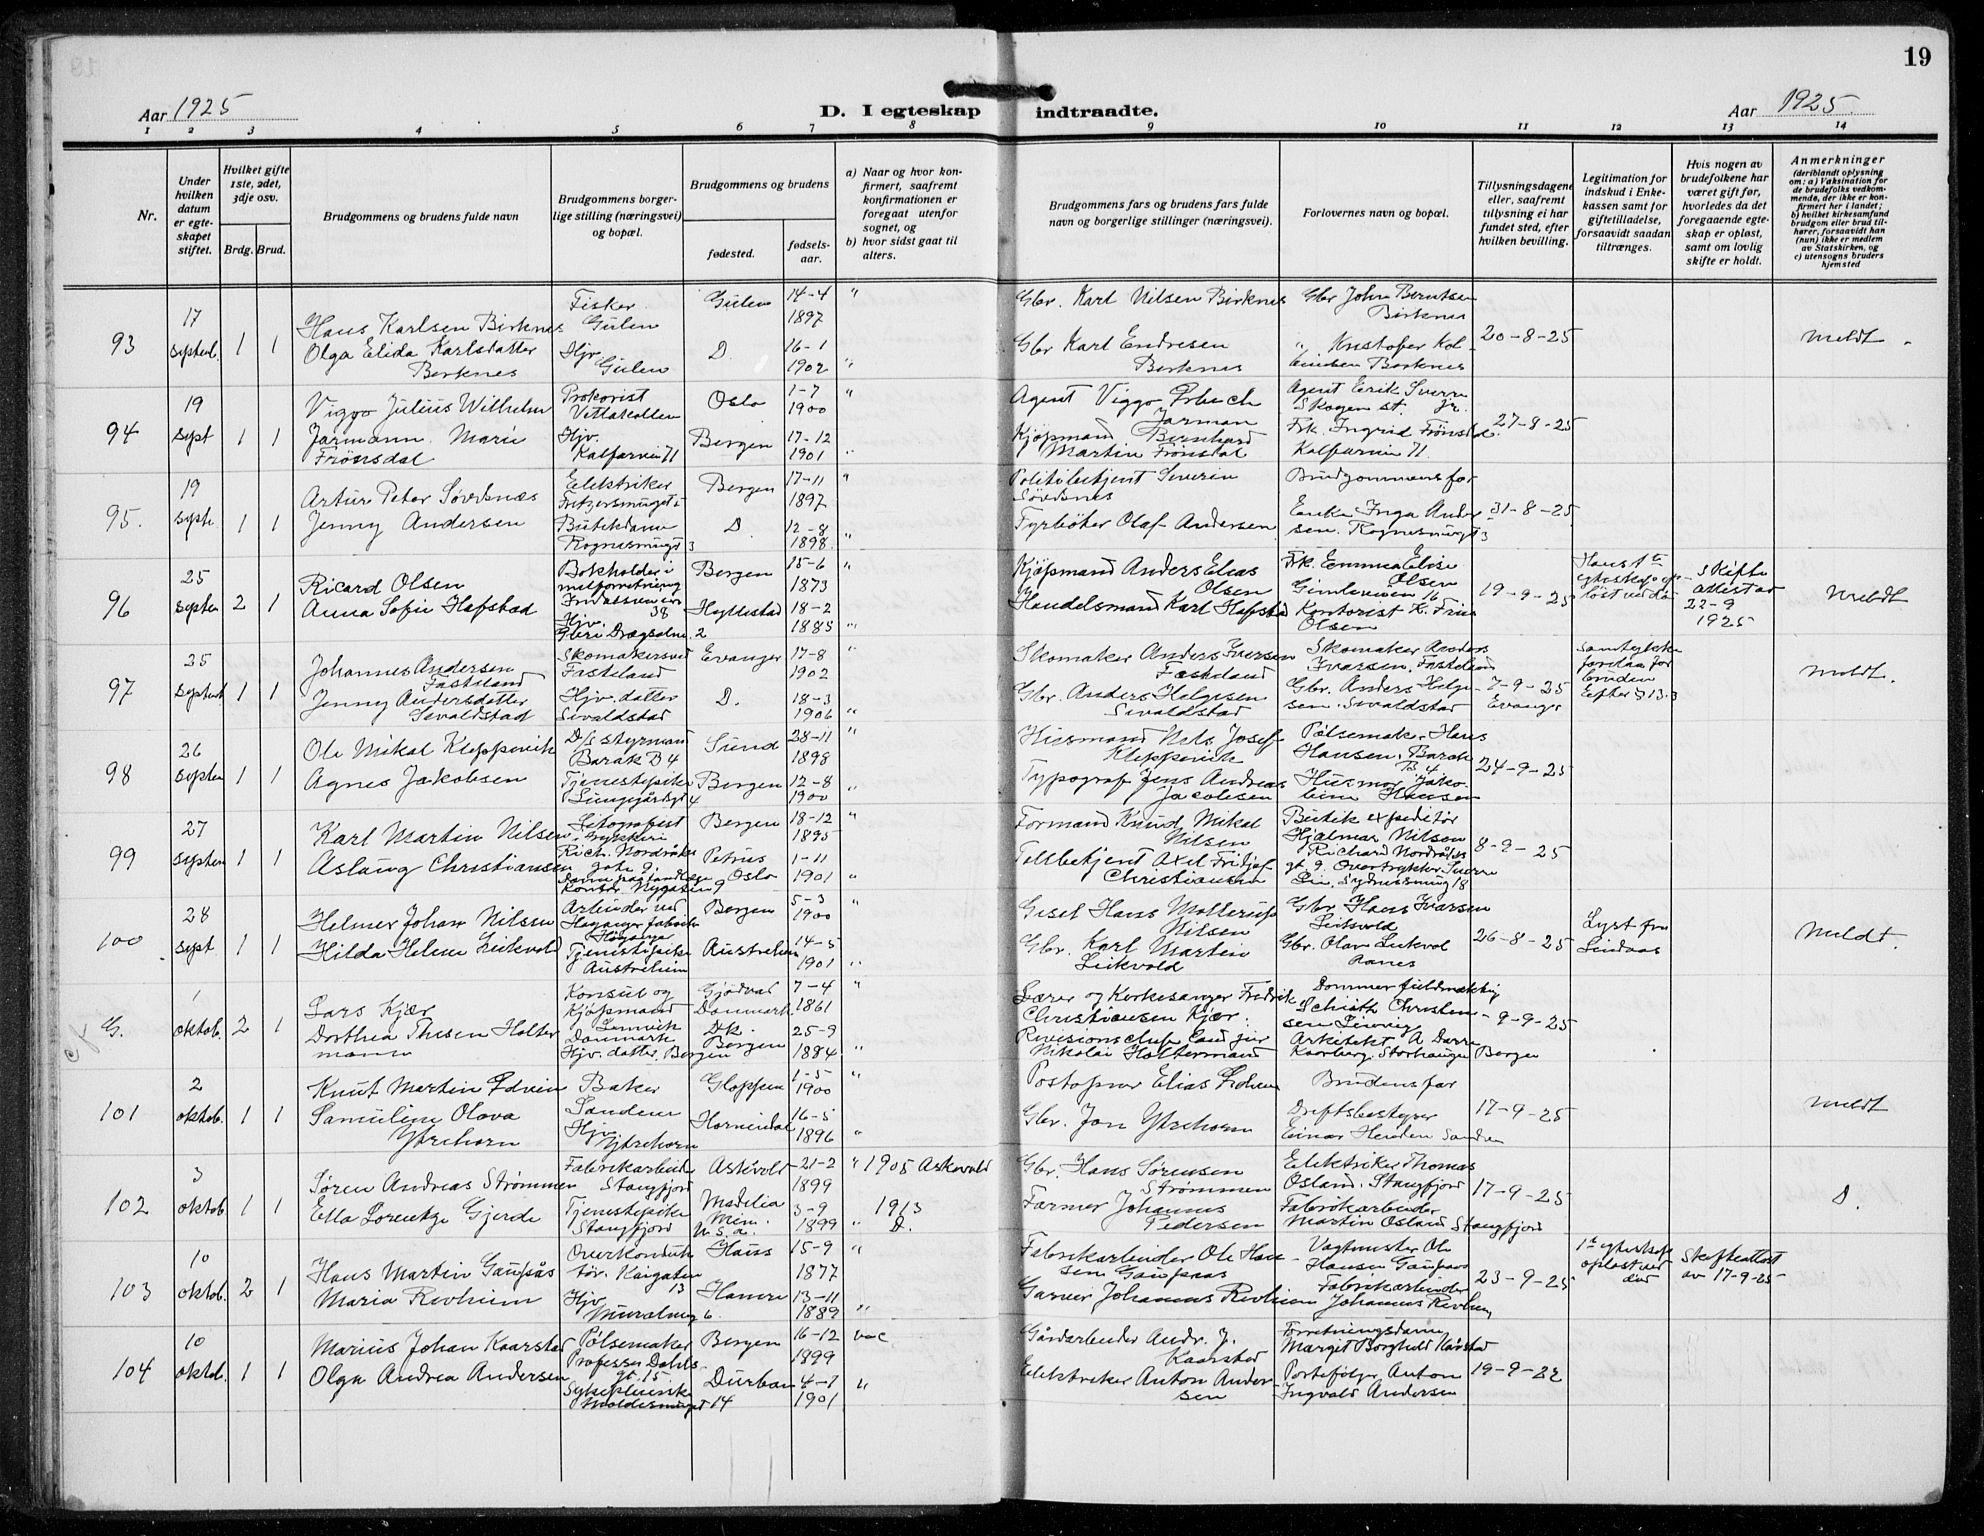 19
Aar 1925
D. I egteskap indtraadte.
Aar 1925.
1 2 3 4 5 6 7 8 9 10 11 12 13 14
Nr.
Under hvilken datum er egteskapet stiftet.
Hvilket gifte 1ste, 2det, 3dje osv.
Brdg. Brud.
Brudgommens og brudens fulde navn
Brudgommens borgerlige stilling (næringsvei) og bopæl.
Brudgommens og brudens
fødested.
fødselsaar.
a) Naar og hvor konfirmert, saafremt konfirmationen er foregaat utenfor sognet, og
b) hvor sidst gaat til alters.
Brudgommens fars og brudens fars fulde navn og borgerlige stillinger (næringsvei).
Forlovernes navn og bopæl.
Tillysningsdagene eller, saafremt tillysning ei har fundet sted, efter hvilken bevilling.
Legitimation for indskud i Enkekassen samt for giftetilladelse, forsaavidt saadan tiltrænges.
Hvis nogen av brudefolkene har været gift før, hvorledes da det foregaaende egteskap er opløst, samt om lovlig skifte er holdt.
Anmerkninger
(deriblandt oplysning om: a) Vaksination for de brudefolks vedkommende, der ikke er konfirmert her i landet; b) hvilket kirkesamfund brudgom eller brud tilhører, forsaavidt han (hun) ikke er medlem av Statskirken, og c) utensogns bruders hjemsted
93 17 septeb. 1 1
Hans Karlsen Birknes
Olga Elida Karlsdatter
Birknes
Fisker
Gulen
Hjv.
Gulen
Gulen 14-4 1897 "
D. 16-1 1902 "
Gbr. Karl Nilsen Birknes
Gbr Karl Endresen
Birknes
Gbr John Berntsen
Birknes
" Kristofer Kol-
Birknes
20-8-25
Meldt
94 19 sept 1 1
Viggo Julius Wilhelm
Jarmann Marie
Frønsdal
Prokorist
Vettakollen
Hjv.
Kalfarvei 71
Oslo 1-7 1900 "
Bergen 17-12 1901 "
Agent Viggo
Jarman
Kjøpmand Bernhard
Martin Frønsdal
Agent Erik Sverre
Skogen st. Jr.
Frk. Ingrid Frønsdal
Kalfarveien 71.
27-8-25
95. 19 septr. 1 1
Artur Peter Søvdsnæs
Jenny Andersen
Elektriker
Butikdame
Rognesmuget 3
Bergen 17-11 1897 "
D. 12-8 1898. "
Politibetjent Severin
Søvdsnes
Fyrbøter Olaf Andersen
Brudgommens far
Enke Inga Ander-
sen. Rognesmugt 3
31-8-25
96 25 septem 2 1
Ricard Olsen
Anna Sofie Hafstad
Bokholder i
38
Hjv.
2
Bergen 15-6 1873 "
Hyllestad 18-2 1885 "
Kjøpmand Anders Elias
Olsen
Handelsmand Karl Hafstad
Frk. Emma Elise
Olsen
16
Kontorist K. Friis
Olsen
19-9-25
Hans 1te
egteskap op-
løst ved død
Skifte
attest av
22-9
1925
Meldt
97 25 septeb 1 1
Johannes Andersen
Fasteland
Jenny Andersdatter
Sevaldstad
Skomakersved
Fasteland
Hjv. datter
Sevaldstad
Evanger 17-8 1902 "
D. 18-3 1906 "
Skomaker Anders Iversen
Fasteland
Gbr. Anders Helgesen
Sivaldstad
Skomaker Anders
Ivarsen. Fasteland
Gbr. Anders Helge-
sen. Sevaldstad
7-9-25
Evanger
Samtykke
foreldre for
bruden
Efter § 13.3
Meldt.
98 26 septem 1 1
Ole Mikal Kleppevik
Agnes Jakobsen
D/s styrmand
Barak B4
Tjenestepike
Sund 28-11 1898 "
Bergen 12-8 1900 "
Husmand Nils Josef
Kleppevik
Typograf Jens Andreas
Jacobsen
Pølsemaker Hans
Hansen. Barak
B 4
Husmor Jako-
bine Hansen
24-9-25
99 27 septem 1 1
Karl Martin Nilsen
Aslaug Christiansen
Litografist
Rich. Nordråks
gate 9.
Bergen 18-12 1895 "
Petrus
Oslo 1-11 1901 "
Formand Knud Mikal
Nilsen
Tollbetjent Axel Fridjof
Christiansen
Butik expeditør
Hjalmar Nilsen
Richard Nordråks
gt 9. Overtrykker Sverre
Lie, Sydnessmug 18
8-9-25
100 28 sept. 1 1
Helmer Johan Nilsen
Hilda Helene Leikvold
Arbeider ved
Høyanger fabrikk
Høyanger
Tjenestepike
Austreheim
Bergen 5-3 1900 "
Austreheim 14-5 1901 "
Gisel Hans Mollerup
Nilsen
Gbr. Karl Martin
Leikvold
Gbr Hans Ivarsen
Leikvold
Gbr. Olav Leikvol
26-8-25
Lyst fra
Lindaas
Meldt.
G. 1 oktob. 2 1
Lars Kjær
Dorthea Thesen Holter
mann
Konsul og
Kjøpmand
Lemvik
Danmark
Hjv. datter. Bergen
Gjødvad
Danmark. 7-4 1861 "
DK.
Bergen 25-9 1884 "
Lærer og Kirkesanger Fredrik
Christiansen Kjær.
Revisionschef Cand jur
Nikolai Holtermand
Dommerfuldmektig
Schiøth Christen-
sen Lemvig
Arkitekt A Darre
Kaarberg. Storhaugen Bergen
9-9-25
101 2 oktob. 1 1
Knut Martin Edvin
Samuline Olava
Ytrehorn
Baker
Sandene
Hjv.
Ytrehorn
Gloppen 1-5 1900 "
Hornindal 16-5 1896 "
Postopner Elias
Gbr. Jon Ytrehorn
Brudens far
Driftsbestyrer
Einar Henden Sanden
17-9-25
Meldt
102 3 oktob. 1 1
Søren Andreas Strømmen
Ella Lorentze Gjerde
Fabrikarbeid
Stangfjord
Tjenestepike
Stangfjord
Askvold 21-2 1899 " 1905 Askevold
Madilia
Min.
U.S.A. 3-9 1899 " 1913 D.
Gbr. Hans Sørensen
Strømmen
Farmer Johannes
Pedersen
Elektriker Thomas
Osland. Stangfjord
Fabrikarbeider
Martin Osland Stangfjord
17-9-25
D.
103 10 oktob. 2 1
Hans Martin Gaupås
Maria Revheim
Overkonduk-
tør. Kaigaten
13
Hjv.
Muralmug 6.
Haus 15-9 1877 "
Hamre 13-11 1889 "
Fabrikarbeider Ole Han-
sen Gaupaas
Garver Johannes Revheim
Vagtmester Ole
Hansen Gaupaas
Fabrikarbeider
Johannes Revheim
23-9-25
1te egteskap
opløst ved
død
Skifteattest
av 17-9-25
104 10 oktob. 1 1
Marius Johan Kaarstad
Olga Andrea Andersen
Pølsemaker
Professer Dahls
gt. 15.
Sykepleierske
14
Bergen 16-12 1899 vac
Durban 4-7 1901 "
Gårdarbeider Andr. J.
Kaarstad
Elektriker Anton Ander-
sen
Forretningsdame
Margit Borghild Kårstad
Portefølger Anton
Ingvald Andersen
19-9-22